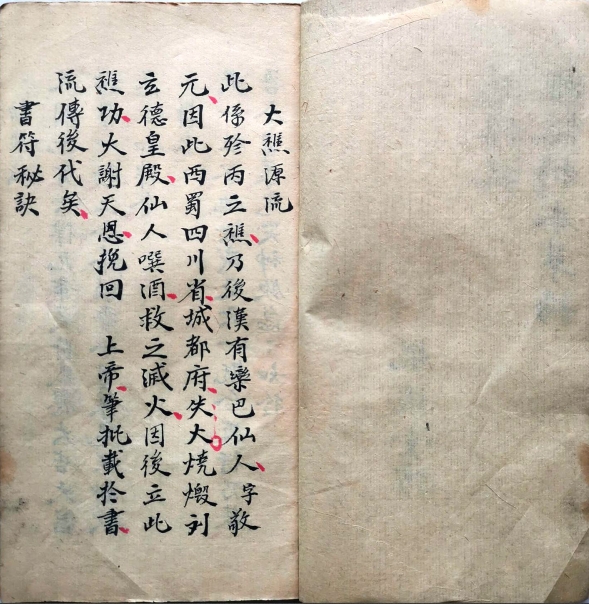 大醮源流
此係殄丙之醮乃後漢有欒巴仙人字敬
元因此西蜀四川省城都府失大燒燬刘
玄德皇殿仙人噀酒救之滅火因後立此
醮功火謝天恩挽回 上帝筆批載於書
流傳後代矣
書符秘訣